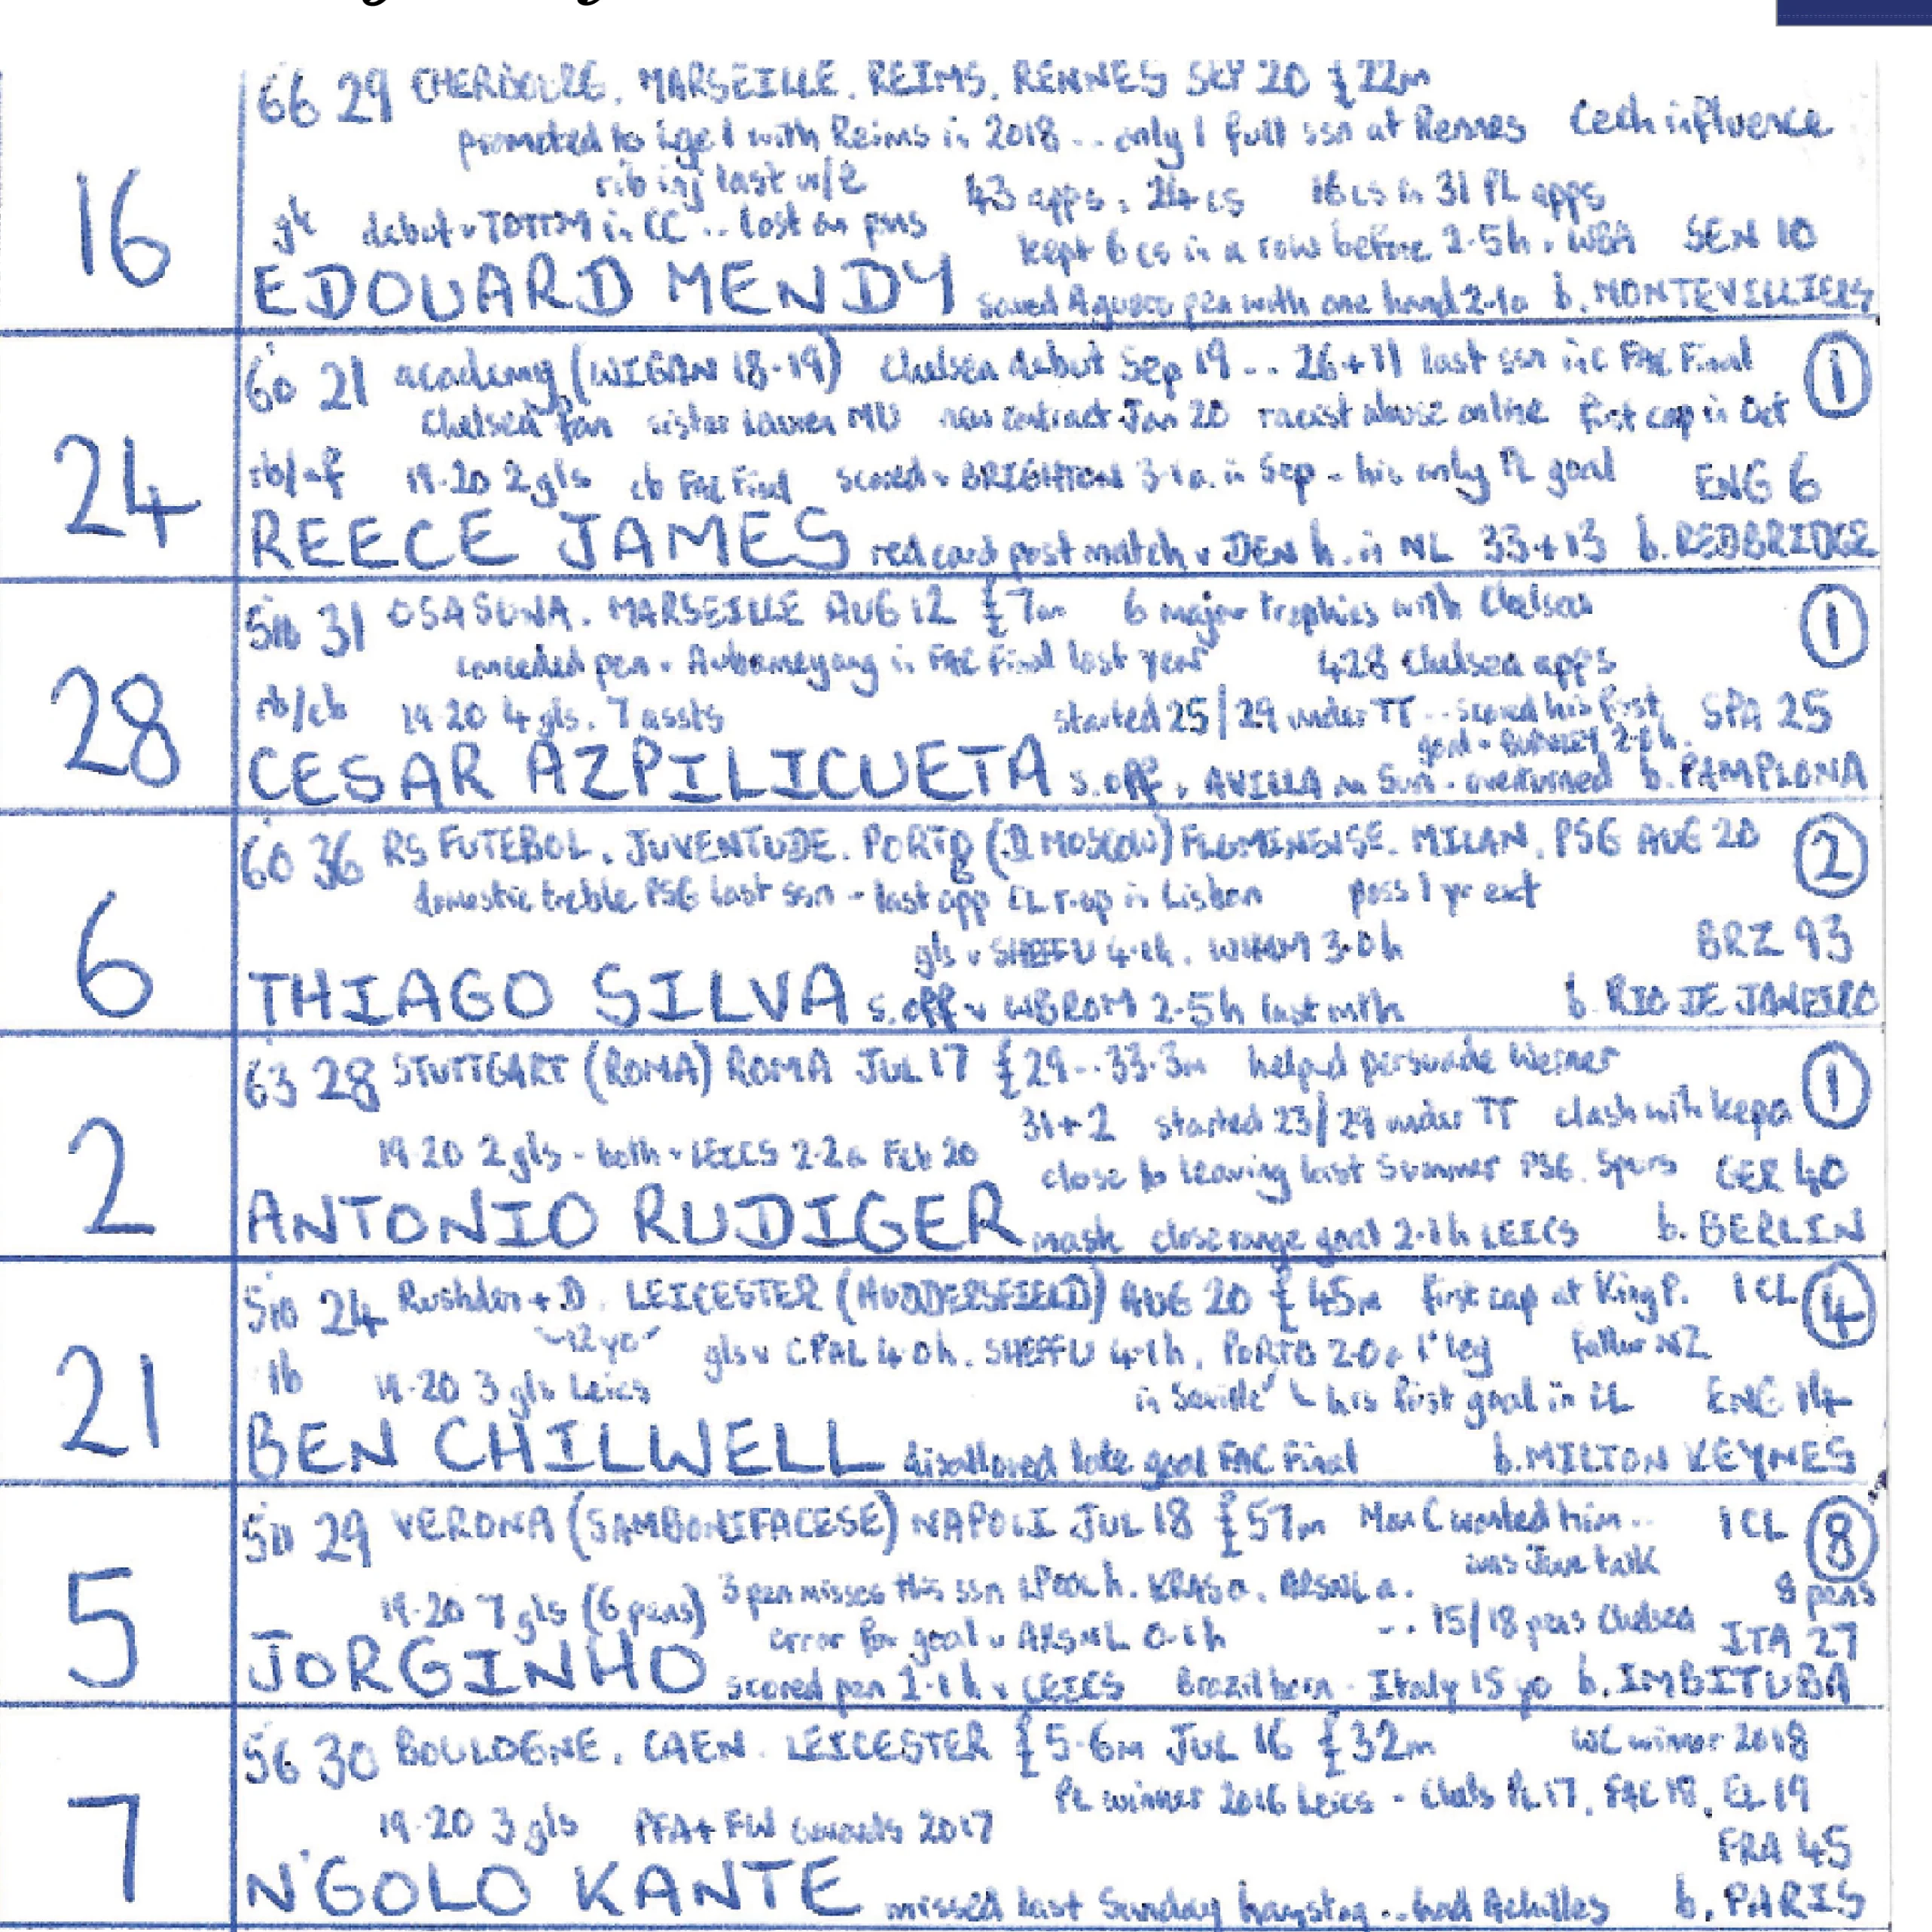 66 29 CHERBOURG. MARSEILLE. REIMS. RENNES SEP 20 £22m
promoted to Lge 1 with Reims in 2018 .. only 1 full ssn at Rennes Cech influence
rib inj last w/e 43 apps. 24 cs 16 cs in 31 PL apps
16 gk debut v TOTTM in CC .. lost on pens kept 6 cs in a row before 2-5h. WBA SEN 10
EDOUARD MENDY saved Aguero pen with one hand 2-1a b. MONTEVILLIERS
60 21 academy (WIGAN 18-19) Chelsea debut Sep 19 .. 26+11 last ssn inc FAC Final 1
Chelsea fan sister Lauren MU new contract Jan 20 racist abuse online first cap in Oct
24 rb/ 19-20 2 gls cb FAC Final scored v BRIGHTON 3-1a. in Sep - his only PL goal ENG 6
REECE JAMES red card post match v DEN h. in NL 33+13 b. REDBRIDGE
510 31 OSASUNA. MARSEILLE AUG 12 £7m 6 major trophies with Chelsea 1
conceded pen v Aubameyang in FAC Final last year 428 Chelsea apps
28 rb/cb 19-20 4 gls. 7 assts started 25/29 under TT .. scored his first SPA 25
goal v BURNLEY 2-0h.
CESAR AZPILICUETA s.off v AVILLA on Sun - overturned b. PAMPLONA
60 36 RS FUTEBOL. JUVENTUDE. PORTO B (D MOSCOW) FLUMINENSE. MILAN. PSG AUG 20 2
domestic treble PSG last ssn - last app CL r-up in Lisbon poss 1 yr ext
6 gls v SHEFFU 4-1h. WHAM 3-0h BRZ 93
THIAGO SILVA s.off v WBROM 2-5h last mth b. RIO DE JANEIRO
63 28 STUTTGART (ROMA) ROMA JUL 17 £29..33.3m helped persuade Werner 1
31+2 started 23/29 under TT clash with Kepa
2 19-20 2 gls - both v LEICS 2-2a Feb 20 close to leaving last Summer PSG. Spurs GER 40
ANTONIO RUDIGER mask close range goal 2-1h LEICS b. BERLIN
510 24 Rushden + D. LEICESTER (HUDDERSFIELD) AUG 20 £45m first cap at King P. 1CL 4
-12 yo- gls v CPAL 4-0h. SHEFFU 4-1h. PORTO 2-0a 1st leg Father NZ
21 lb 19-20 3 gls Leics in Seville his first goal in CL ENG 14
BEN CHILWELL disallowed late goal FAC Final b. MILTON KEYNES
511 29 VERONA (SAMBONIFACESE) NAPOLI JUL 18 £57m Man C wanted him.. 1CL 8
was Juve talk 8 pens
5 19-20 7 gls (6 pens) 3 pen misses this ssn LPOOL h. KRAS a. ARSNL a.
error for goal v ARSNL 0-1h .. 15/18 pens Chelsea ITA 27
JORGINHO scored pen 2-1h v LEICS Brazil born - Italy 15 yo b. IMBITUBA
56 30 BOULOGNE. CAEN. LEICESTER £5.6m JUL 16 £32m WC winner 2018
PL winner 2016 Leics - Chels PL 17. FAC 18. EL 19
7 19-20 3 gls PFA + FW awards 2017 FRA 45
N'GOLO KANTE missed last Sunday hamstrg .. had Achilles b. PARIS